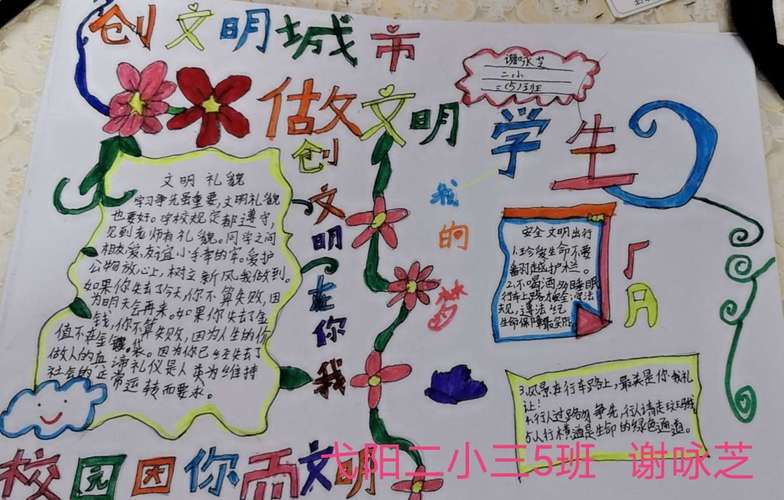 创文明城市
做文明
学生
谢咏芝
二小
三(5)班
创文明在你我
我的梦
文明礼貌
学习争先虽重要,文明礼貌
也要好。学校规定都遵守,
见到老师有礼貌。同学之间
相友爱,友谊小手牵的牢。爱护
公物放心上,树立新风我做到。
如果你失去了今天,你不算失败,因
为明天会再来。如果你失去了金
钱,你不算失败,因为人生的价
值不在金钱袋。因为你已经失去了
做人的真
社会的正常运转而要求。
礼仪是人类为维持
安全文明出行
1.珍爱生命不要
翻越护栏。
2.不喝酒
行车
规,遵法纪
生命保障最实际
3.风景在行车路上,最美是你我礼
让!
4.行人过路勿争先,行人请走斑马线
5.人行横道是生命的绿色通道。
校园因你而文明
弋阳二小三5班 谢咏芝